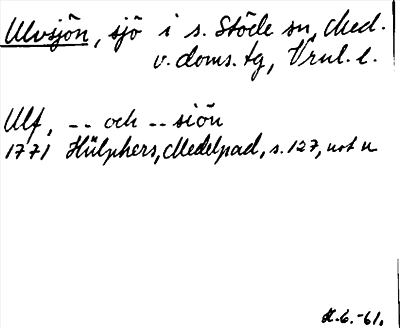 Ulvsjön, sjö i s. Stöde sn, Med.
v. doms. tg, Vrnl. l.
Ulf, -- och -- siön
1771 Hülphers, Medelpad, s. 127, not u
H. 6. -61.